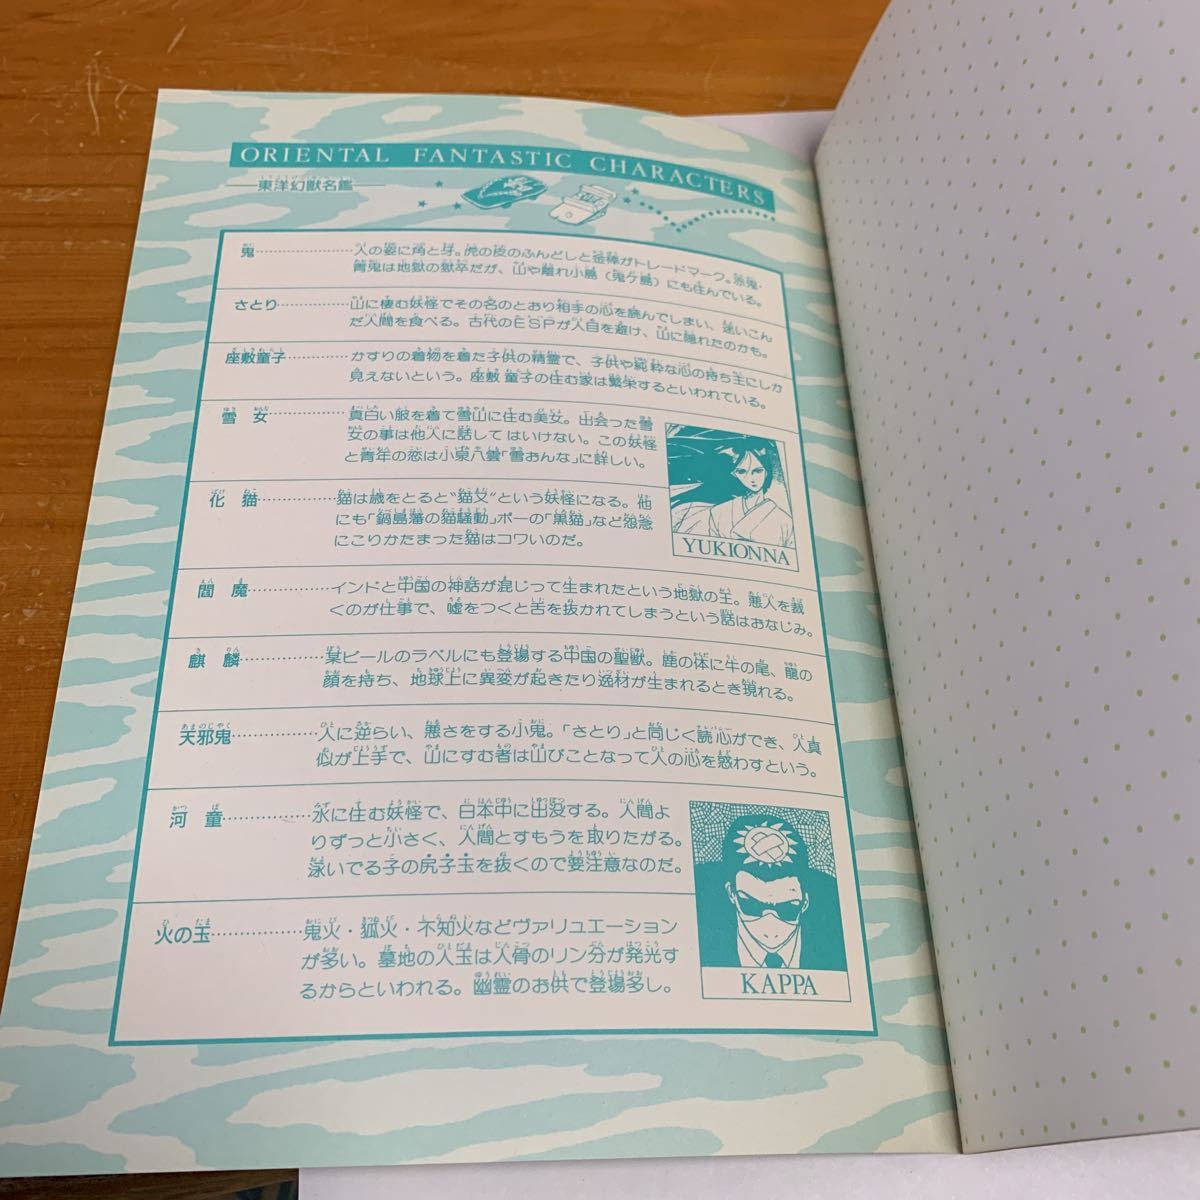 ORIENTAL FANTASTIC CHARACTERS
東洋幻獣名鑑
鬼……………人の姿に角と牙。虎の皮のふんどしと金棒がトレードマーク。赤鬼・
青鬼は地獄の獄卒だが、山や離れ小島（鬼ケ島）にも住んでいる。
さとり…………山に棲む妖怪でその名のとおり相手の心を読んでしまい、迷いこん
だ人間を食べる。古代のESPが人目を避け、山に隠れたのかも。
座敷童子………かすりの着物を着た子供の精霊で、子供や純粋な心の持ち主にしか
見えないという。座敷童子の住む家は繁栄するといわれている。
雪女……………真白い服を着て雪山に住む美女。出会った雪
女の事は他人に話してはいけない。この妖怪
と青年の恋は小泉八雲「雪おんな」に詳しい。
YUKIONNA
化猫……………猫は歳をとると“猫又”という妖怪になる。他
にも「鍋島藩の猫騒動」ポーの「黒猫」など怨念
にこりかたまった猫はコワいのだ。
閻魔……………インドと中国の神話が混じって生まれたという地獄の王。悪人を裁
くのが仕事で、嘘をつくと舌を抜かれてしまうという話はおなじみ。
麒麟……………某ビールのラベルにも登場する中国の聖獣。鹿の体に牛の尾、龍の
顔を持ち、地球上に異変が起きたり逸材が生まれるとき現れる。
天邪鬼…………人に逆らい、悪さをする小鬼。「さとり」と同じく読心ができ、人真
似が上手で、山にすむ者は山びことなって人の心を惑わすという。
河童……………水に住む妖怪で、日本中に出没する。人間よ
りずっと小さく、人間とすもうを取りたがる。
泳いでる子の尻子玉を抜くので要注意なのだ。
火の玉…………鬼火・狐火・不知火などヴァリュエーション
が多い。墓地の人玉は人骨のリン分が発光す
るからといわれる。幽霊のお供で登場多し。
KAPPA